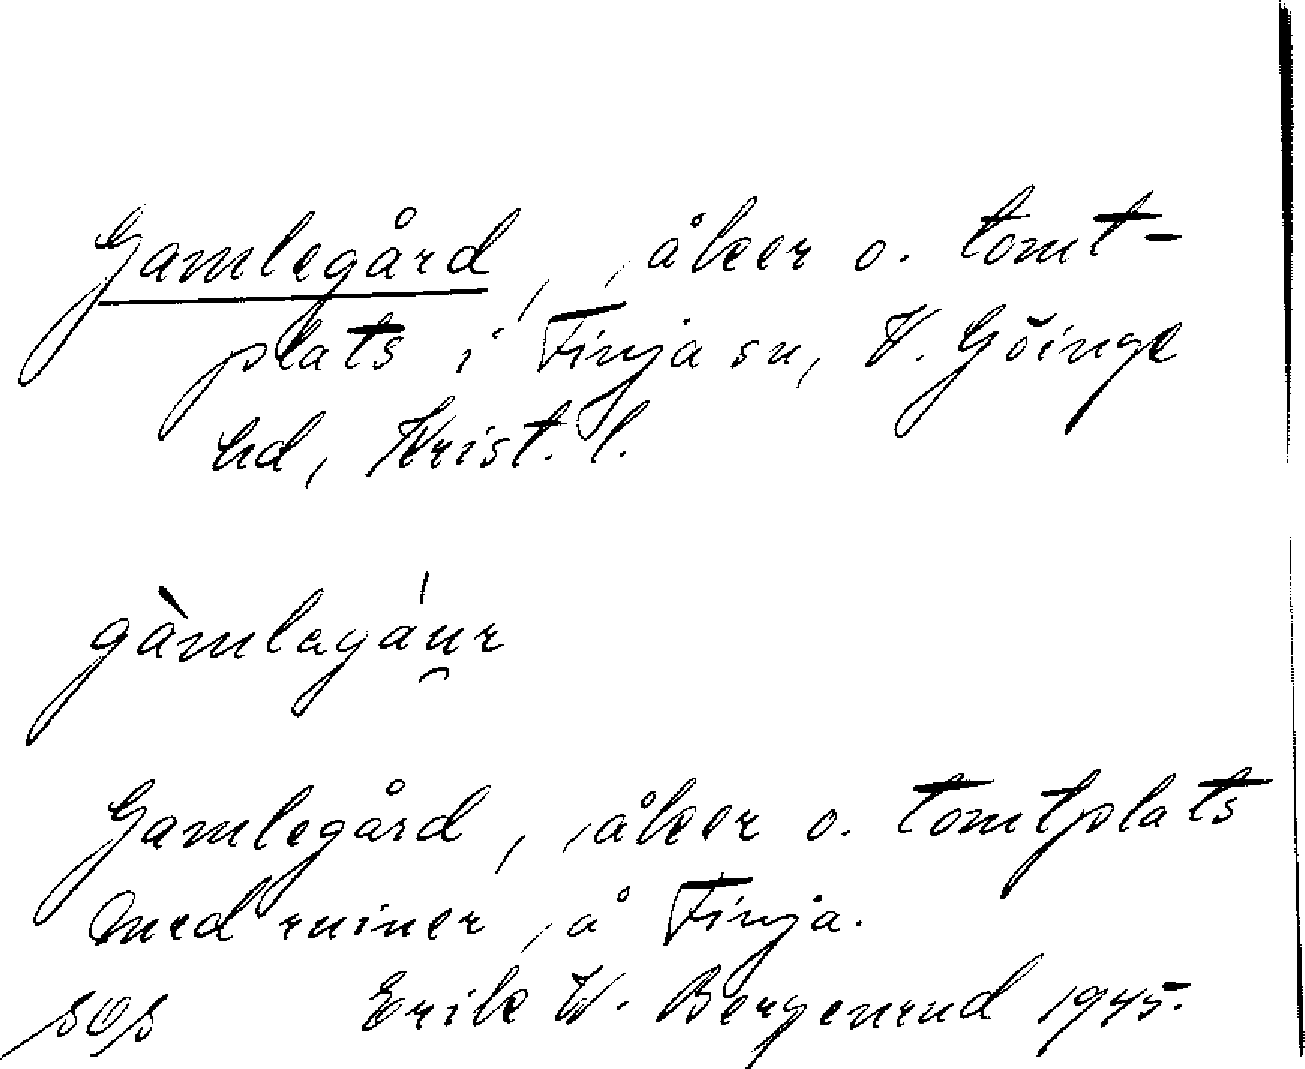 Gamlegård, åker o. tomt-
plats i Finja sn, V. Göinge
hd, Krist. l.
gàmlagáu̯r
Gamlegård, åker o. tomtplats
med ruiner, å Finja.
Erik W. Bergenrud 1945.